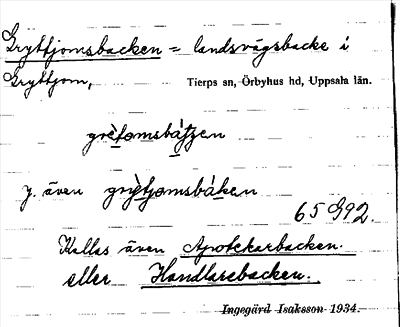 Gryttjomsbacken = landsvägsbacke i
Gryttjom, Tierps sn, Örbyhus hd, Uppsala län.
grètomsbàtzen
j. även grỳtjomsbàken
65 992.
Kallas även Apotekarbacken.
eller Handlarebacken.
Ingegärd Isaksson 1934.